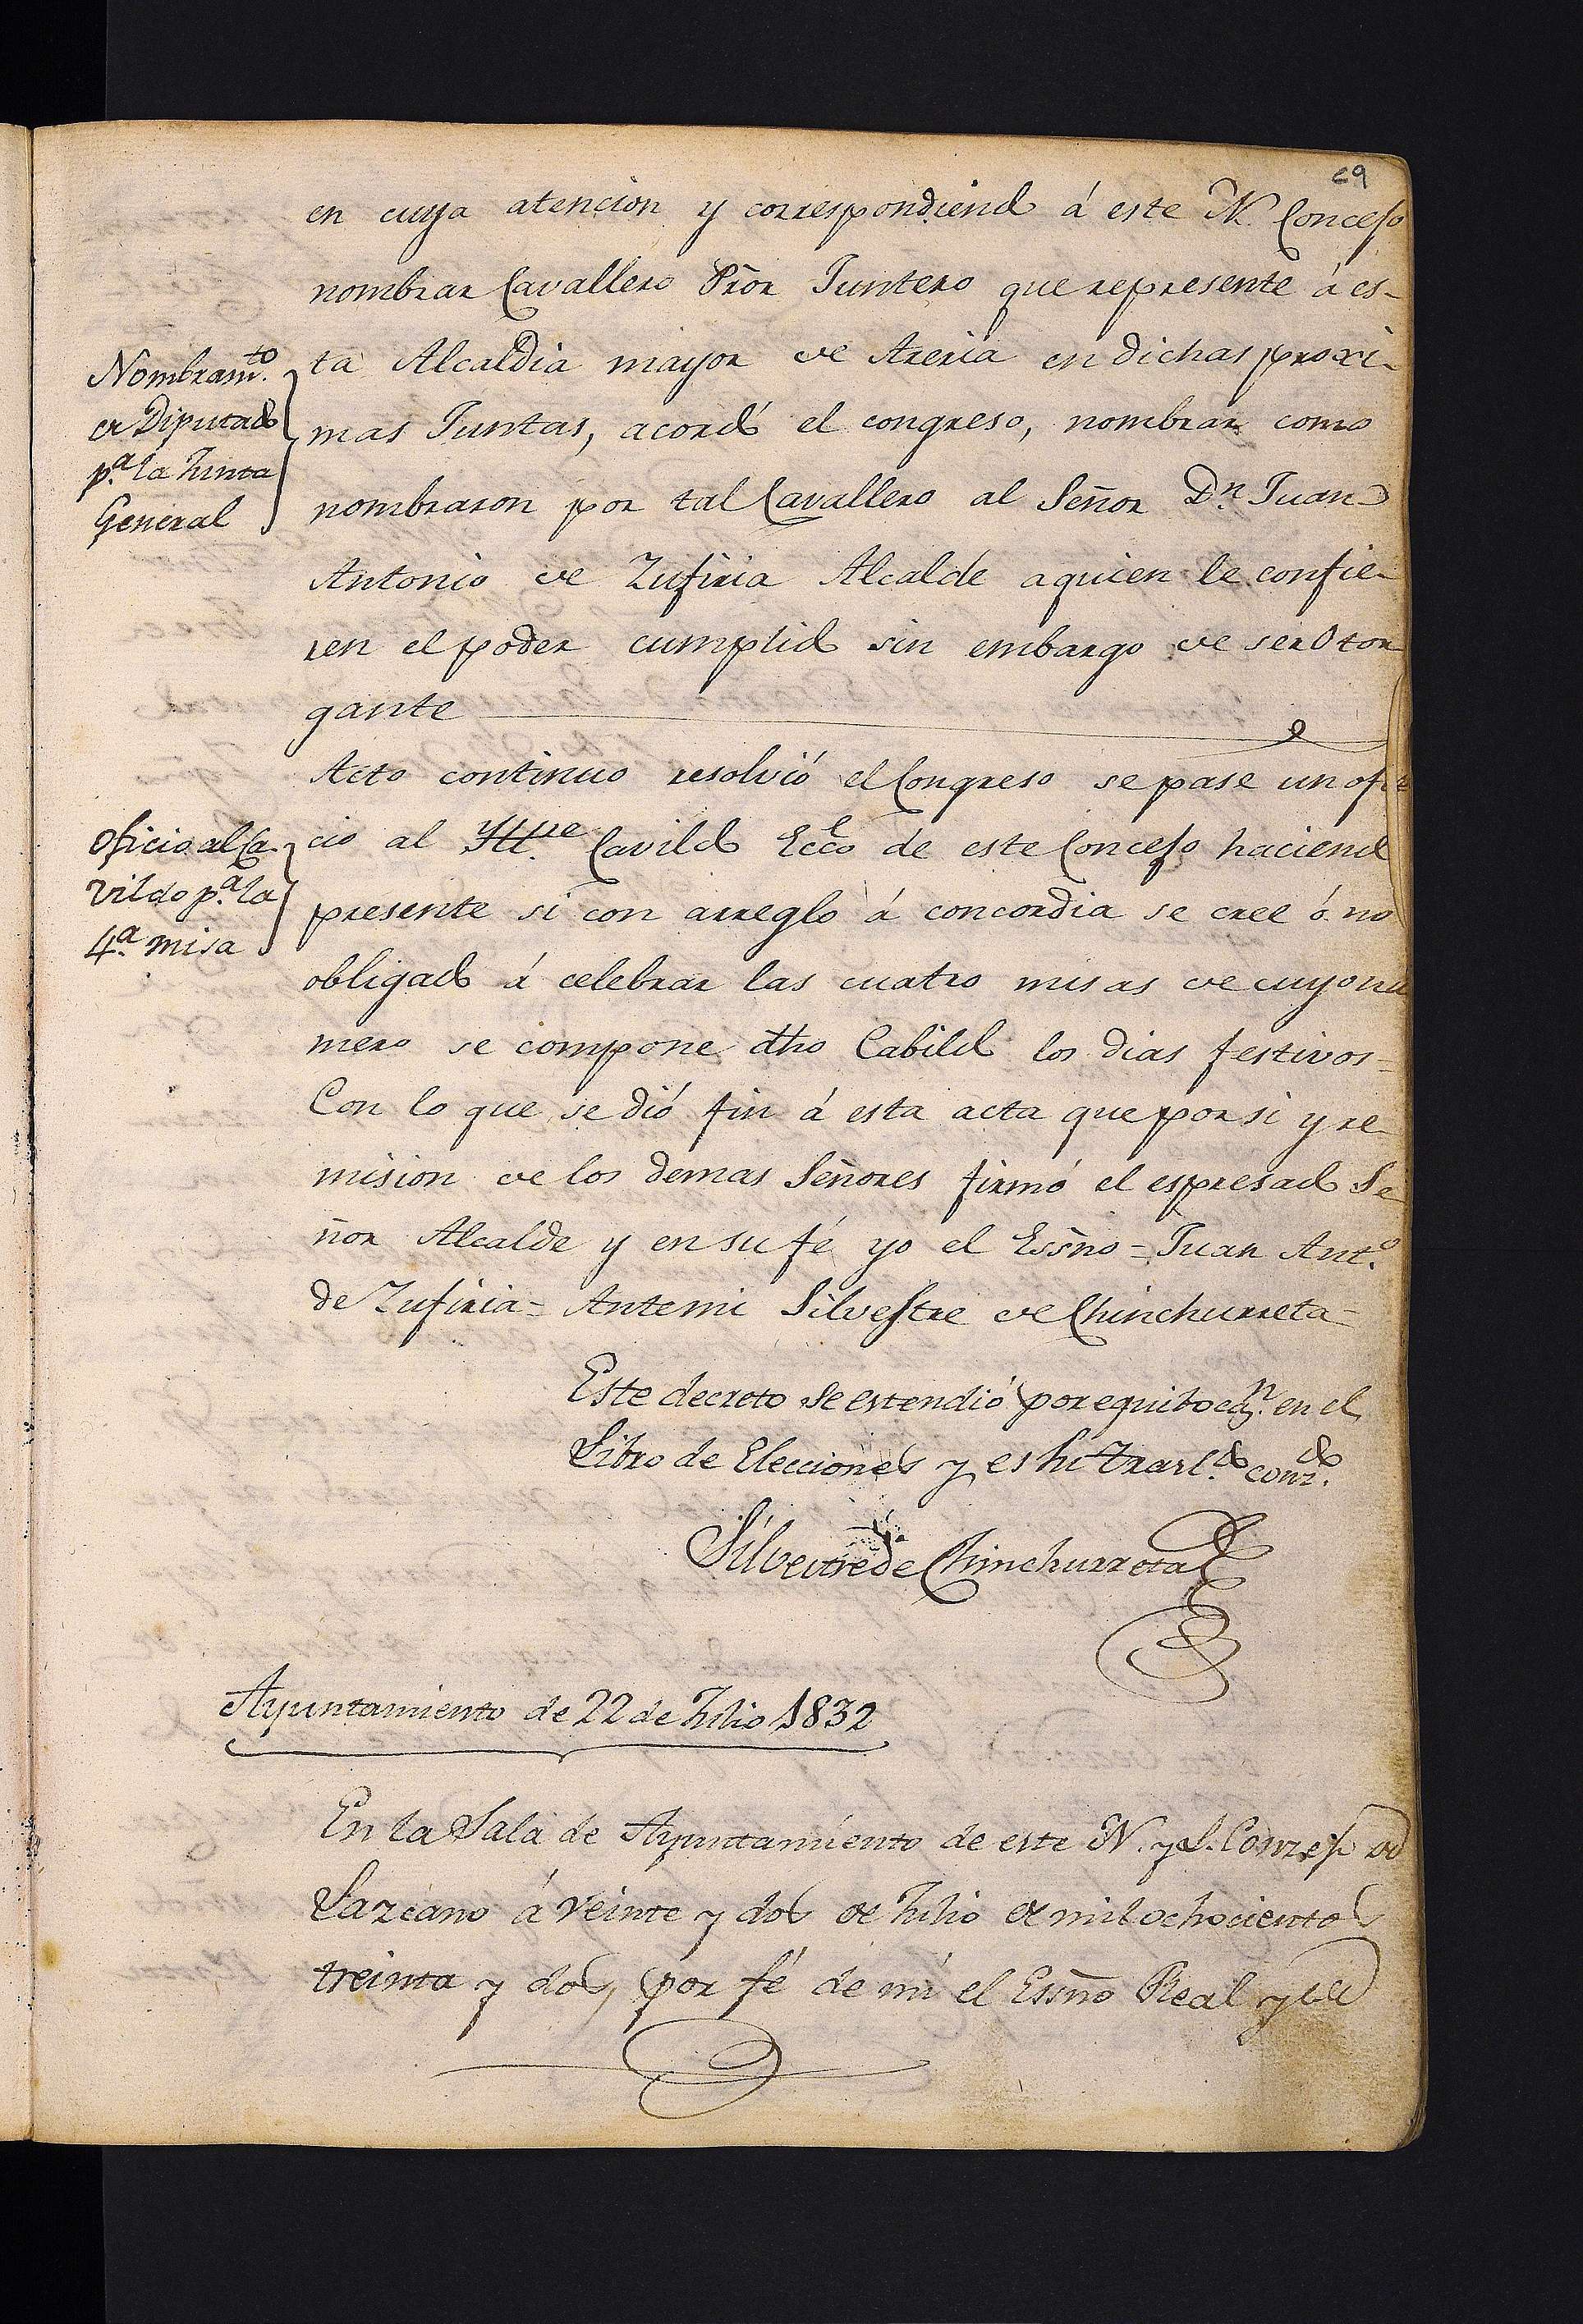 69
en cuya atencion y correspondiendo á este N. Concejo
nombrar Cavallero Pror Juntero que represente á es-
ta Alcaldia mayor de Areria en dichas proxi-
mas Juntas, acordó el congreso, nombrar como
nombraron por tal Cavallero al Señor Dn. Juan
Antonio de Zufiria Alcalde a quien le confie-
ren el poder cumplido sin embargo de ser Otor-
gante
Nombramto.
de Diputado
pa. la Junta
General
Acto continuo resolvió el Congreso se pase un ofi-
cio al Ylltre. Cavildo Ecco de este Concejo haciendo
presente si con arreglo á concordia se cree ó no
obligado á celebrar las cuatro misas de cuyo nu
mero se compone dho Cabildo los dias festivos=
Oficio al Ca-
vildo pa. la
4a. misa
Con lo que se dió fin á esta acta que por si y re-
mision de los demas Señores firmó el espresado Se-
ñor Alcalde y en su fé yo el Essno = Juan Anto.
de Zufiria = Ante mi Silvestre de Chinchurreta =
Este decreto se estendió por equibocn. en el
Libro de Elecciones y es su Trasldo. conzdo.
Silvestre de Chinchurreta
Ayuntamiento de 22 de Julio 1832
En la Sala de Ayuntamiento de este N. y L. Conzejo de
Lazcano á veinte y dos de Julio de mil ochocientos
treinta y dos, por fé de mi el Essno Real y del